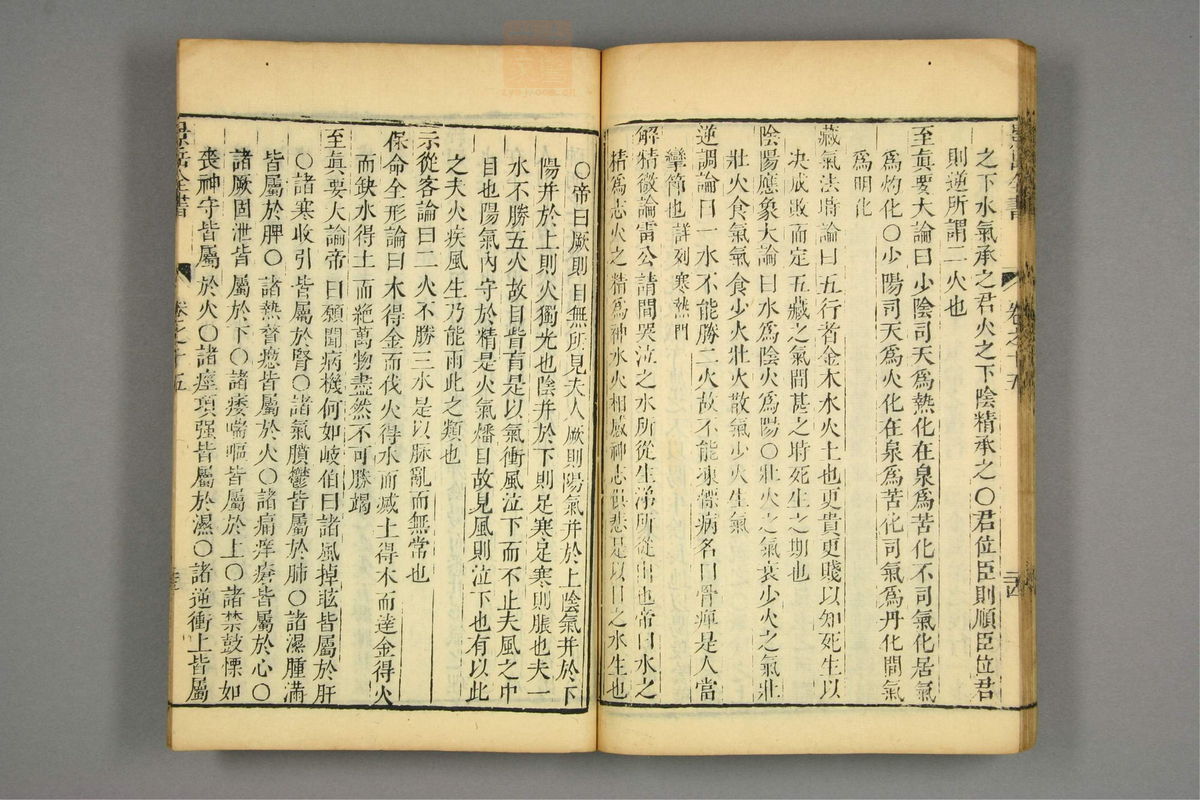 之下水氣承之君火之下陰精承之〇君位臣則順臣位君
則逆所謂二火也
至眞要大論曰少陰司天爲熱化在泉爲苦化不司氣化居氣
爲灼化〇少陽司天爲火化在泉爲苦化司氣爲丹化間氣
爲明化
藏氣法時論曰五行者金木水火土也更貴更賤以知死生以
決成敗而定五藏之氣間甚之時死生之期也
陰陽應象大論曰水爲陰火爲陽〇壯火之氣衰少火之氣壯
壯火食氣氣食少火壯火散氣少火生氣
逆調論曰一水不能勝二火故不能凍慄病名曰骨痺是人當
攣節也詳列寒熱門
解精微論雷公請問哭泣之水所從生涕所從出也帝曰水之
精爲志火之精爲神水火相感神志俱悲是以目之水生也
景岳全書
卷之十五
三十四
〇帝曰厥則目無所見夫人厥則陽氣并於上陰氣并於下
陽并於上則火獨光也陰并於下則足寒足寒則脹也夫一
水不勝五火故目眥盲是以氣衝風泣下而不止夫風之中
目也陽氣內守於精是火氣燔目故見風則泣下也有以此
之夫火疾風生乃能雨此之類也
示從容論曰二火不勝三水是以脉亂而無常也
保命全形論曰木得金而伐火得水而滅土得木而達金得火
而缺水得土而絕萬物盡然不可勝竭
至眞要大論帝曰願聞病機何如岐伯曰諸風掉眩皆屬於肝
〇諸寒收引皆屬於腎〇諸氣膹鬱皆屬於肺〇諸濕腫滿
皆屬於脾〇諸熱瞀瘛皆屬於火〇諸痛痒瘡皆屬於心〇
諸厥固泄皆屬於下〇諸痿喘嘔皆屬於上〇諸禁鼓慄如
喪神守皆屬於火〇諸痙項强皆屬於濕〇諸逆衝上皆屬
景岳全書
卷之十五